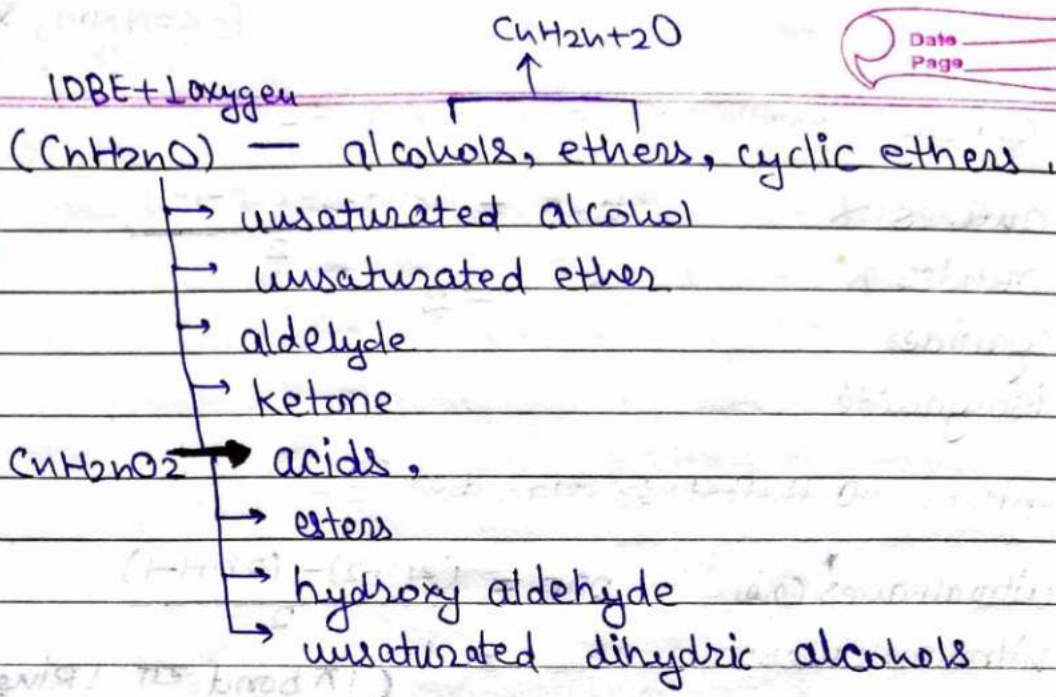 CnH2n+2O
Date
Page
1DBE+1oxygen
(CnH2nO) — alcohols, ethers, cyclic ethers.
unsaturated alcohol
unsaturated ether
aldelyde
ketone
CnH2nO2 → acids,
esters
hydroxy aldehyde
unsaturated dihydric alcohols